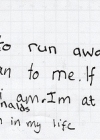 to run awa
an to me. If
i am. Im at
nalds
n in my life